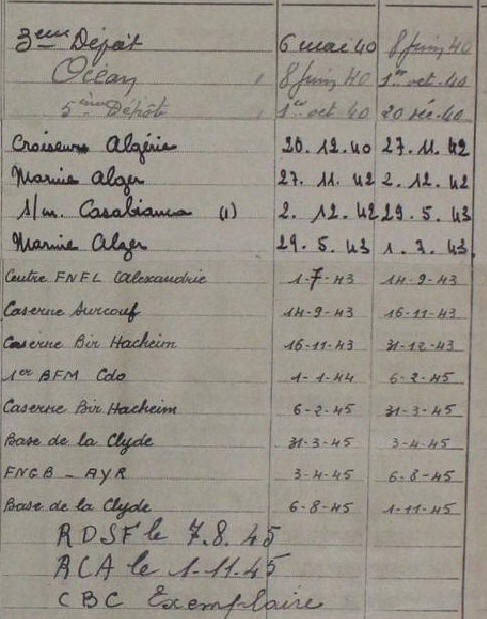 3ème Dépôt 6 mai 40 8 juin 40
Océan 8 juin 40 1er oct. 40
5ième Dépôt 1er oct 40 20 déc. 40
Croiseur Algérie 20. 12. 40 27. 11. 42
Marine Alger 27. 11. 42 2. 12. 42
s/m. Casabianca (1) 2. 12. 42 29. 5. 43
Marine Alger 29. 5. 43 1. 7. 43
Centre FNFL Calexandrie 1-7-43 14-9-43
Caserne Surcouf 14-9-43 16-11-43
Caserne Bir Hacheim 16-11-43 31-12-43
1er BFM Cdo 1-1-44 6-2-45
Caserne Bir Hacheim 6-2-45 31-3-45
Base de la Clyde 31-3-45 3-4-45
FNGB - AYR 3-4-45 6-8-45
Base de la Clyde 6-8-45 1-11-45
RDSF le 7.8.45
RCA le 1-11.45
CBC Exemplaire